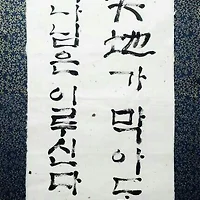 天地가 막아도
나님은 이루신다